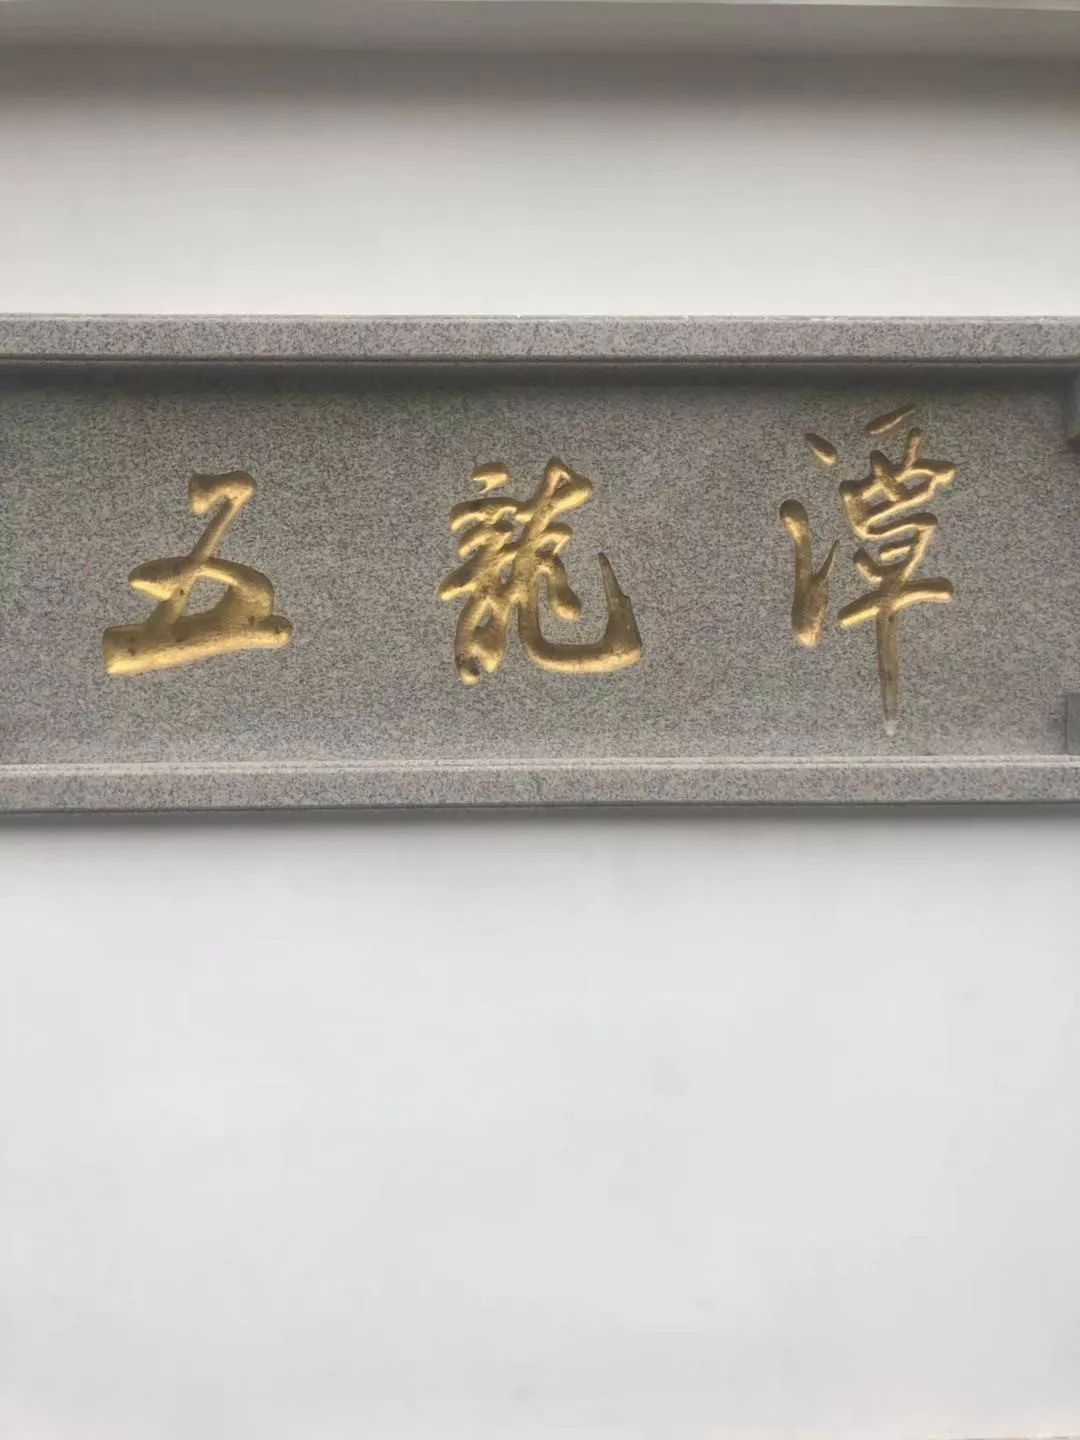 五龍潭